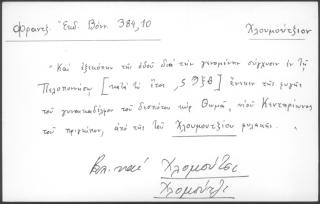 Φραντζ. Ἔκδ. Βόνν. 384,10 Χλουμούτζιον
"Καὶ ἐξεκόπη τῆς ὁδοῦ διὰ τὴν γενομένην σύγχυσιν ἐν τῇ
Πελοποννήσῳ [κατὰ τὸ ἔτος ,ςϠξβ] ἕνεκεν τῆς φυγῆς
τοῦ γυναικαδέλφου τοῦ δεσπότου κὺρ Θωμᾶ, υἱοῦ Κεντηρίωνος
τοῦ πρίγκιπος, ἀπὸ τῆς τοῦ Χλουμουτζίου φυλακῆς.
Βλ. καὶ Χλομούτσι
Χλομούτζι